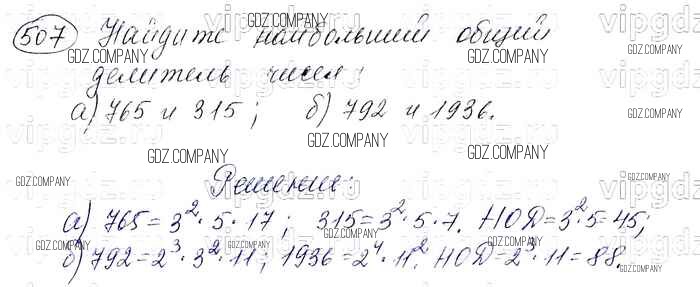 507 Найдите наибольший общий
делитель чисел:
а) 765 и 315; б) 792 и 1936.
Решение:
а) 765 = 3²·5·17; 315 = 3²·5·7. НОД = 3²·5 = 45;
б) 792 = 2³·3²·11; 1936 = 2⁴·11². НОД = 2³·11 = 88.
vipgdz.ru
GDZ.COMPANY